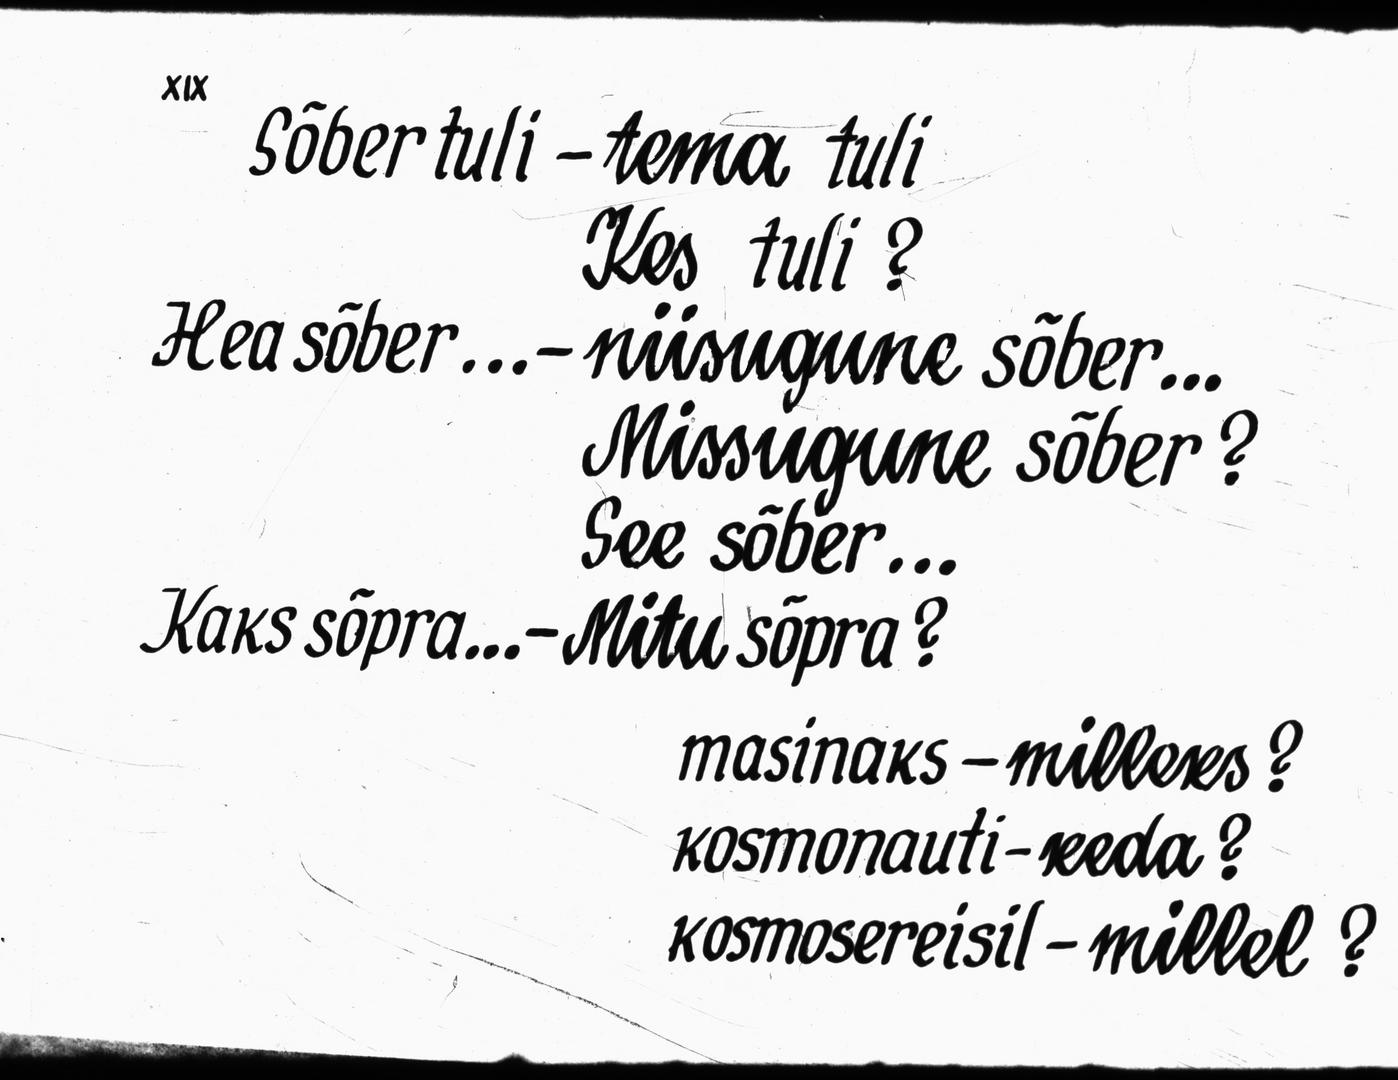 XIX
Sõber tuli – tema tuli
Kes tuli ?
Hea sõber ... – niisugune sõber...
Missugune sõber ?
See sõber ...
Kaks sõpra... – Mitu sõpra ?
masinaks – milleks ?
kosmonauti – keda ?
kosmosereisil – millel ?